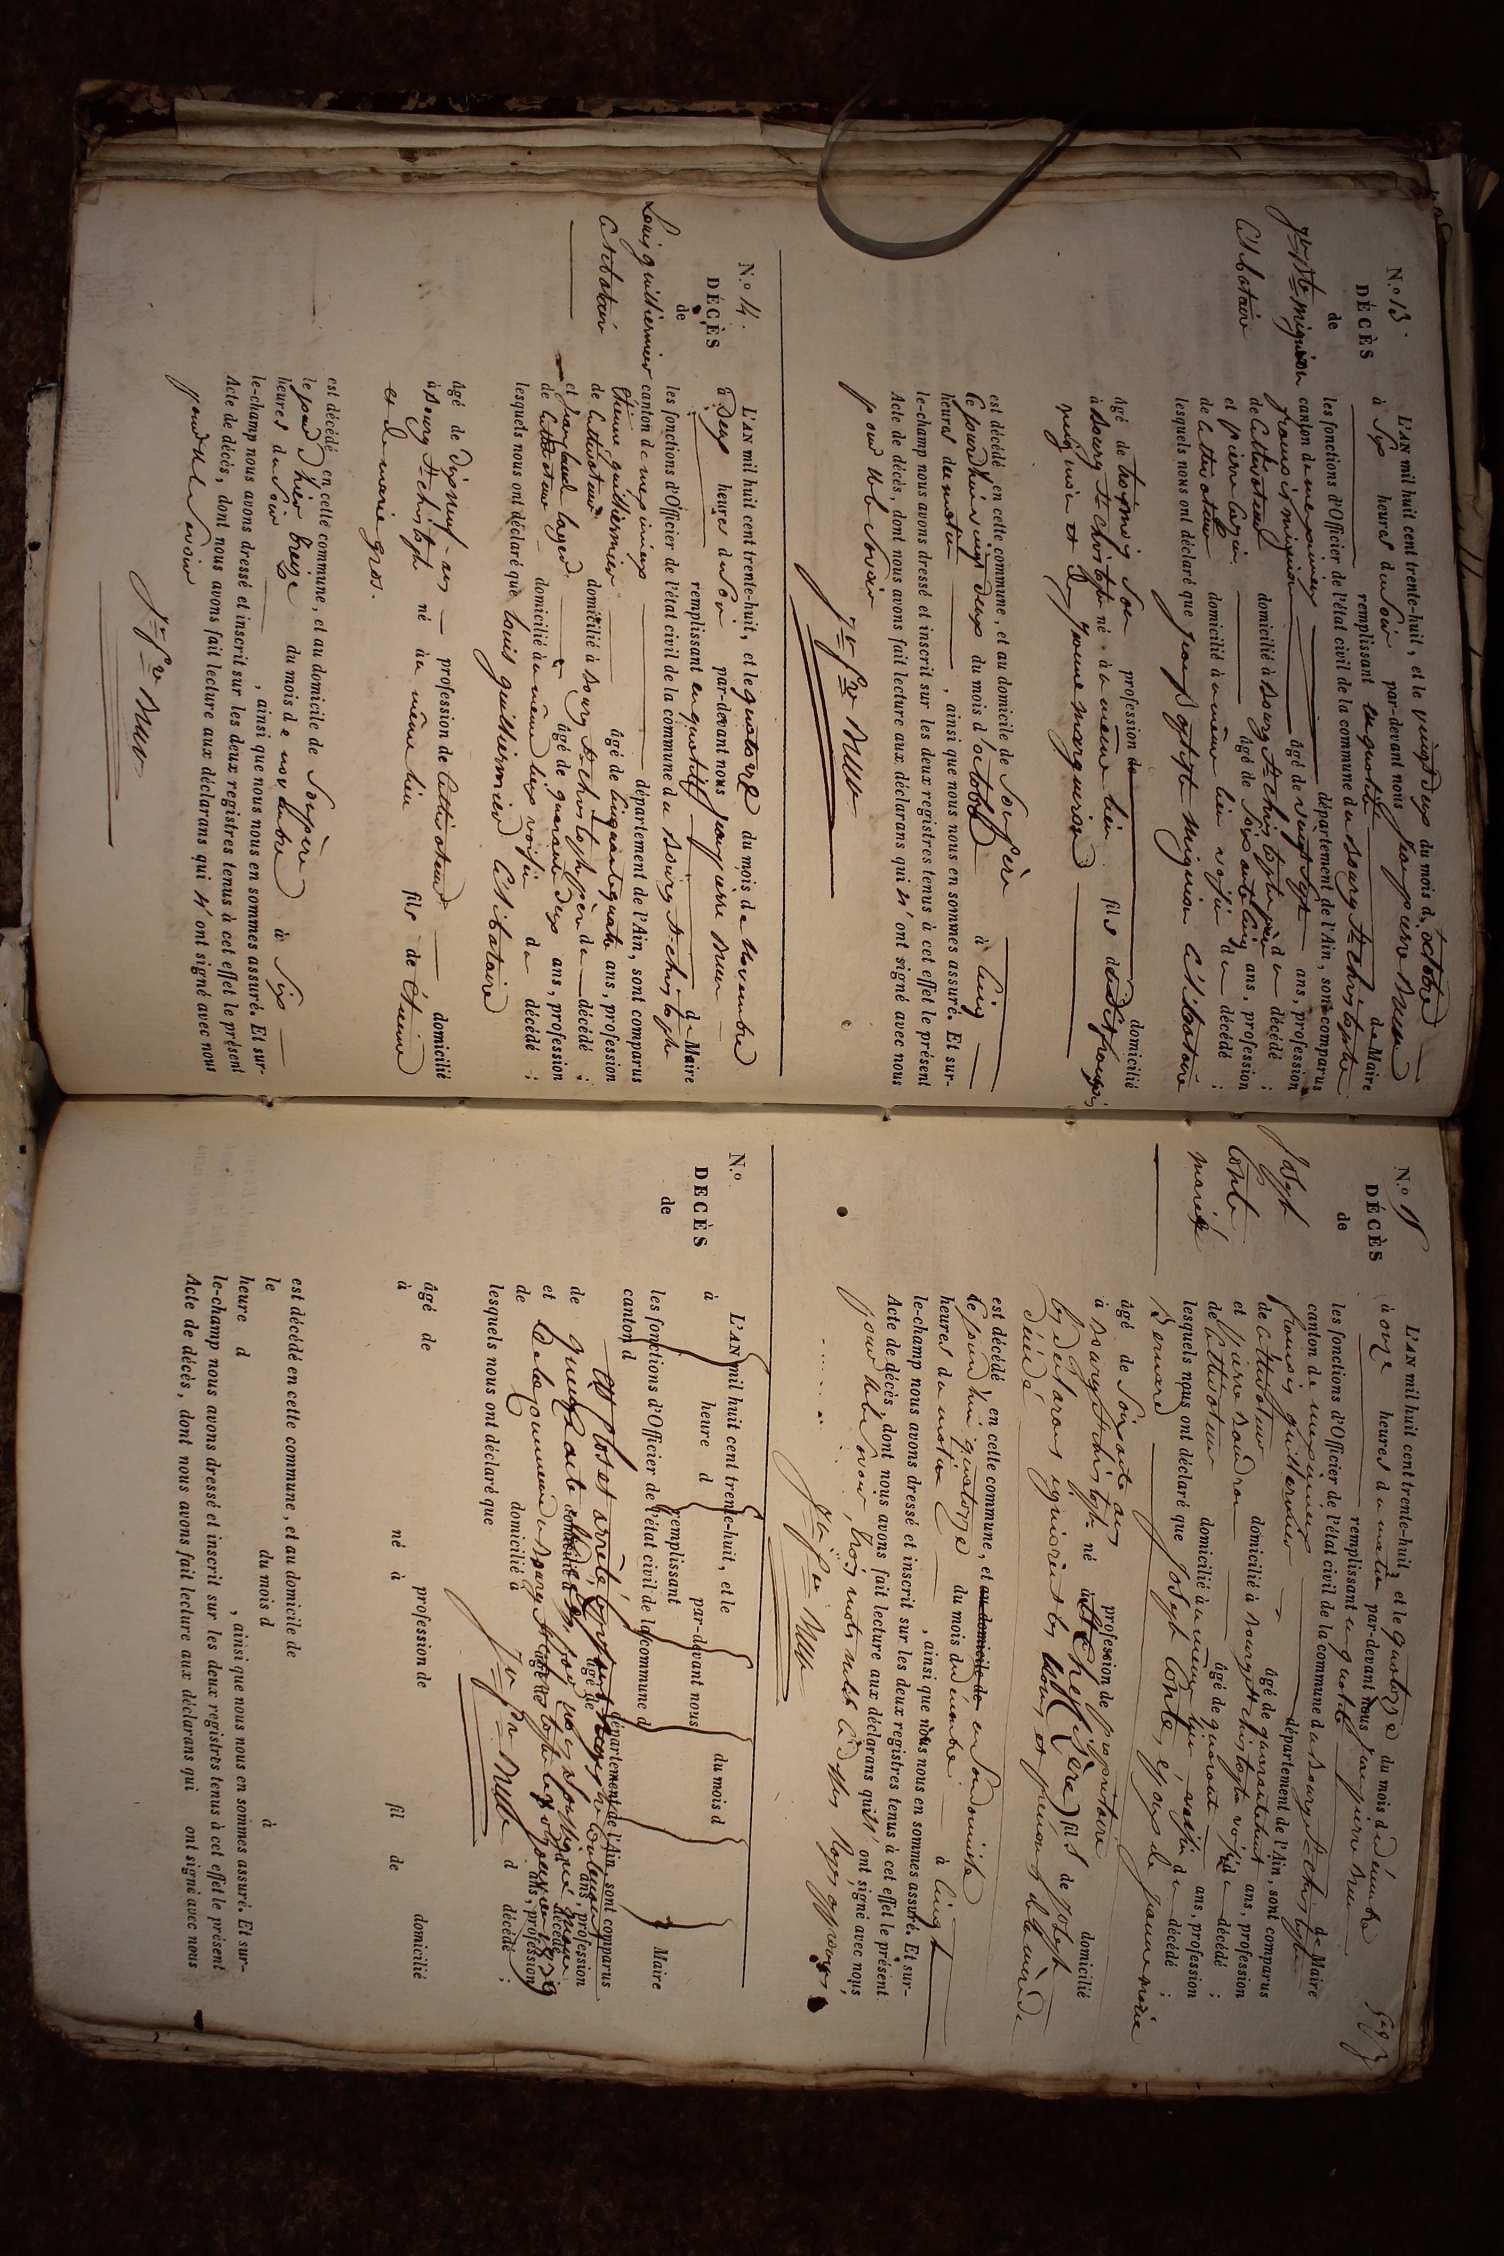 N.º 13.
DÉCÈS
de
jn Bte mignion
Célibataire
L'AN mil huit cent trente-huit, et le vingt deux du mois d'octobre
à Six heures du Soir par-devant nous jean pierre
remplissant en qualité de Maire
les fonctions d'Officier de l'état civil de la commune du bourg St christophe
canton de meximieux département de l'Ain, sont comparus
francois mignion âgé de vingt Sept ans, profession
de Cultivateur domicilié à bourg St christophe père du décédé ;
et pierre âgé de Soixante cinq ans, profession
de Cultivateur domicilié à u même lieu voisin du décédé ;
lesquels nous ont déclaré que jean Baptiste Mignion Célibataire
âgé de trois mois profession de domicilié
à bourg St christophe né à u même lieu fils dudit françois
mignion et de jeanne marguerion
est décédé en cette commune, et au domicile de Son père
le jourd'hui vingt deux du mois d'octobre à Cinq
heures du matin , ainsi que nous nous en sommes assuré. Et sur-
le-champ nous avons dressé et inscrit sur les deux registres tenus à cet effet le présent
Acte de décès, dont nous avons fait lecture aux déclarans qui n'ont signé avec nous
pour ne le Savoir
N.º 14.
DÉCÈS
de
Louis guillermier
Célibataire
L'AN mil huit cent trente-huit, et le quatorze du mois de Novembre
à Deux heures du Soir par-devant nous jean pierre
remplissant en qualité de Maire
les fonctions d'Officier de l'état civil de la commune du bourg St christophe
canton de meximieux département de l'Ain, sont comparus
Etienne guillermier âgé de Cinquante quatre ans, profession
de Cultivateur domicilié à bourg St christophe père du décédé ;
et âgé de quarante deux ans, profession
de Cultivateur domicilié à u même lieu voisin du décédé ;
lesquels nous ont déclaré que Louis guillermier Célibataire
âgé de Dix neuf ans profession de Cultivateur domicilié
à bourg St christophe né à u même lieu fils de Etienne
et de marie gros.
est décédé en cette commune, et au domicile de Son père
le jour d'hier treize du mois de novembre à Six
heures du Soir , ainsi que nous nous en sommes assuré. Et sur-
le-champ nous avons dressé et inscrit sur les deux registres tenus à cet effet le présent
Acte de décès, dont nous avons fait lecture aux déclarans qui n'ont signé avec nous
pour ne le Savoir
N.º 15
DÉCÈS
de
Joseph
Conte
marié
L'AN mil huit cent trente-huit, et le quatorze du mois de décembre
à onze heures du matin par-devant nous jean pierre
remplissant en qualité de Maire
les fonctions d'Officier de l'état civil de la commune du bourg St christophe
canton de meximieux département de l'Ain, sont comparus
francois guillermier âgé de quarante huit ans, profession
de Cultivateur domicilié à bourg St christophe voisin du décédé ;
et pierre âgé de quarante ans, profession
de Cultivateur domicilié à u même lieu, voisin du décédé ;
lesquels nous ont déclaré que Joseph Conte, epoux de jeanne marie
Bernard
âgé de Soixante ans profession de propriétaire domicilié
à bourg St christophe né à fils de joseph
les déclarans ignorent les noms et prénoms de la mère du
décédé
est décédé en cette commune, et au domicile de en Son domicile
le jourd'hui quatorze du mois de décembre à Cinq
heures du matin , ainsi que nous nous en sommes assuré. Et sur-
le-champ nous avons dressé et inscrit sur les deux registres tenus à cet effet le présent
Acte de décès, dont nous avons fait lecture aux déclarans qui n'ont signé avec nous,
pour ne le Savoir, trois mots nuls Ci dessus rayés approuvés
N.º
DÉCÈS
de
L'AN mil huit cent trente-huit, et le du mois d
à heure d par-devant nous
remplissant Maire
les fonctions d'Officier de l'état civil de la commune d
canton d département de l'Ain, sont comparus
Clos et arrêté le présent registre Contenant
âgé de ans, profession
de domicilié à d décédé ;
et âgé de ans, profession
de domicilié à d décédé ;
lesquels nous ont déclaré que
âgé de profession de domicilié
à né à fil de
est décédé en cette commune, et au domicile de
le du mois d à
heure d , ainsi que nous nous en sommes assuré. Et sur-
le-champ nous avons dressé et inscrit sur les deux registres tenus à cet effet le présent
Acte de décès, dont nous avons fait lecture aux déclarans qui ont signé avec nous